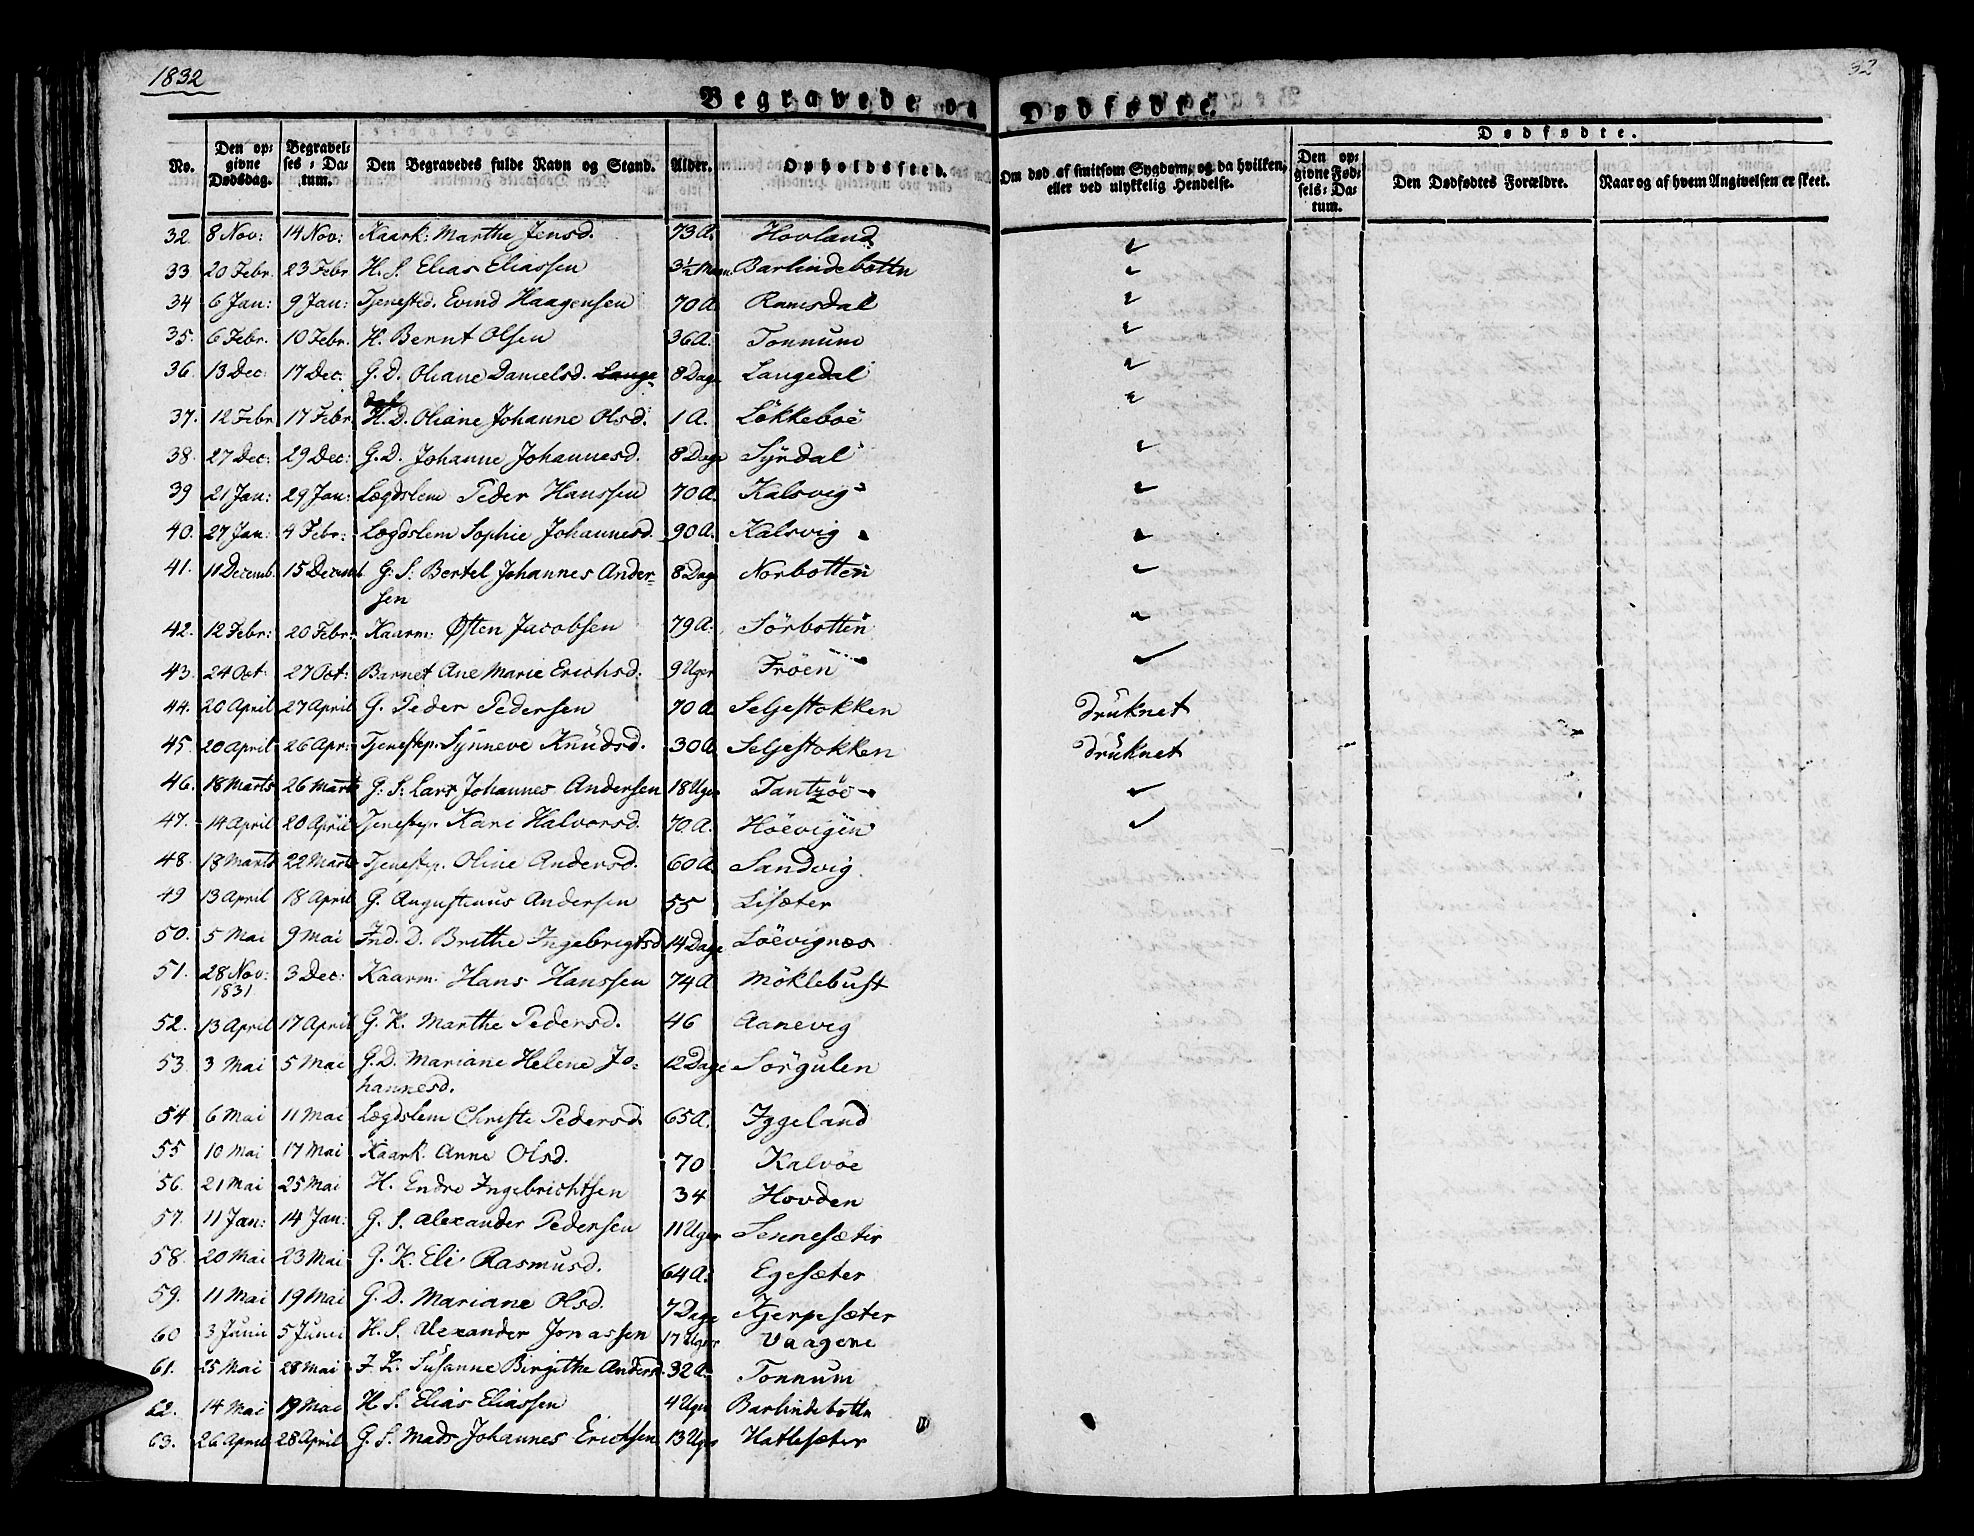 1832
32
Begravede og Dødfødte.
No. Den opgivne Dødsdag. Begravelses-Datum. Den Begravedes fulde Navn og Stand. Alder. Opholdssted. Om død af smitsom Sygdom, og da hvilken, eller ved ulykkelig Hendelse. Den opgivne Fødsels-Datum. Dødfødte. Den Dødfødtes Forældre. Naar og af hvem Angivelsen er skeet.
32. 8 Nov: 14 Nov: Kaark: Marthe Jensd. 73 A. Hovland
33 20 Febr. 23 Febr H. S. Elias Eliassen 3½ Maan. Barlindebottn
34 6 Jan: 9 Jan: Tjenested. Evind Haagensen 70 A. Ramsdal
35. 6 Febr. 10 Febr. H. Bernt Olsen 36 A. Tonnum
36. 13 Dec: 17 Dec. G. D. Oliane Danielsd. Lange- 8 Dage Langedal
37. 12 Febr 17 Febr. H. D. Oliane Johanne Olsd. 1 A. Løkkeboe
38. 27 Dec: 29 Dec: G. D. Johanne Johannesd. 8 Dage Syrdal
39 21 Jan: 29 Jan: Lægdslem Peder Hanssen 70 A. Kalsvig
40. 27 Jan: 4 Febr: Lægdslem Sophie Johannesd. 90 A. Kalsvig
41. 11 Decemb. 15 Decemb. G. S: Bertel Johannes Ander-
sen 8 Dage Norbotten
42. 12 Febr: 20 Febr: Kaarm: Østen Jacobsen 79 A. Sörbotten
43. 24 Oct: 27 Oct: Barnet Ane Marie Erichsd. 9 Uger Fröen
44. 20 April 27 April G. Peder Pedersen 70 A Seljestokken drüknet
45. 20 April 26 Apr: Tjenestep. Synneve Knüdsd. 30 A. Seljestokken drüknet
46. 18 Marts 26 Marts G. S: Lars Johannes Andersen 18 Uger Tantzöe
47. 14 April 20 April Tjenestep. Kari Halvorsd. 70 A. Höevigen
48. 18 Marts 22 Marts Tjenestep. Oline Andersd. 60 A. Sandvig
49 13 April 18 April G. Augustinus Andersen 55 Lisæter
50. 5 Mai 9 Mai Ind. D. Brithe Ingebrigtsd 14 Dage Löevignæs
51. 28 Nov: 1831 3 Dec: Kaarm: Hans Hanssen 74 A Möklebust
52. 13 April 17 April G. K. Marthe Pedersd. 46 Aanevig
53. 3 Mai 5 Mai G. D. Mariane Helene Jo-
hannesd. 12 Dage Sörgulen
54 6 Mai 11 Mai Lægdslem Christe Pedersd. 65 A. Iggeland
55 10 Mai 17 Mai Kaark. Anne Olsd. 70 Kalvöe
56. 21 Mai 25 Mai H. Endre Ingebrichtsen 34 Hovden
57. 11 Jan: 14 Jan: G. S. Alexander Pedersen 11 Uger Sennesæter
58. 20 Mai 23 Mai G. K. Eli Rasmusd. 64 A. Egesæter
59. 11 Mai 19 Mai G. D. Mariane Olsd. 7 Dage Kjerpesæter
60 3 Junii 5 Junii H. S. Alexander Jonassen 17 Uger Vaagene
61. 25 Mai 28 Mai I. K. Süsanne Birgithe Andersd. 32 A. Tonnum
62. 14 Mai 19 Mai H. S. Elias Eliassen 4 Uger Barlindebottn
63. 26 April 28 April G. S. Mads Johannes Erichsen 13 Uger Hatlesæter